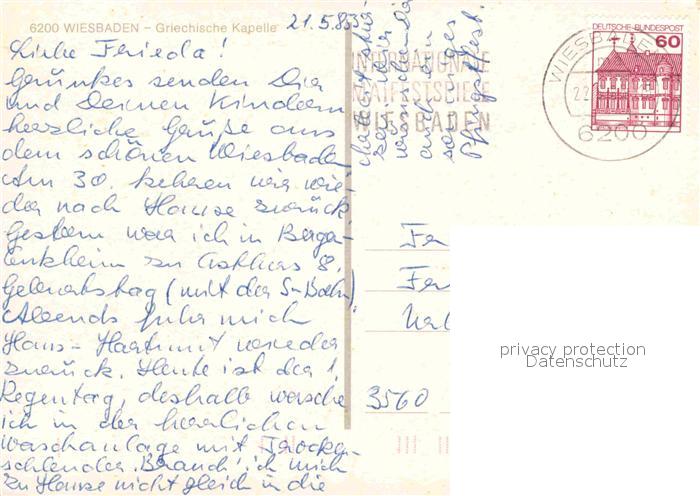 6200 WIESBADEN – Griechische Kapelle
21.5.85
Liebe Frieda!
senden Dir
und Deinen Kindern
herzliche Grüße aus
dem schönen Wiesbaden
Am 30. kehren wir wie-
der nach Hause zurück
Gestern war ich in Berge-
Enkheim zu 8.
Geburtstag (mit der S-Bahn).
Abends fuhr mich
Hans-Hartmut wieder
zurück. Heute ist der 1.
Regentag, deshalb wasche
ich in der herrlichen
Waschanlage mit Trocken-
schleuder. Brauch' ich mich
zu Hause nicht gleich in die
wieder
auch ein
Pfingstfest.
DEUTSCHE BUNDESPOST
60
WIESBADEN
22
6200
INTERNATIONALE
MAIFESTSPIELE
WIESBADEN
3560
privacy protection
Datenschutz